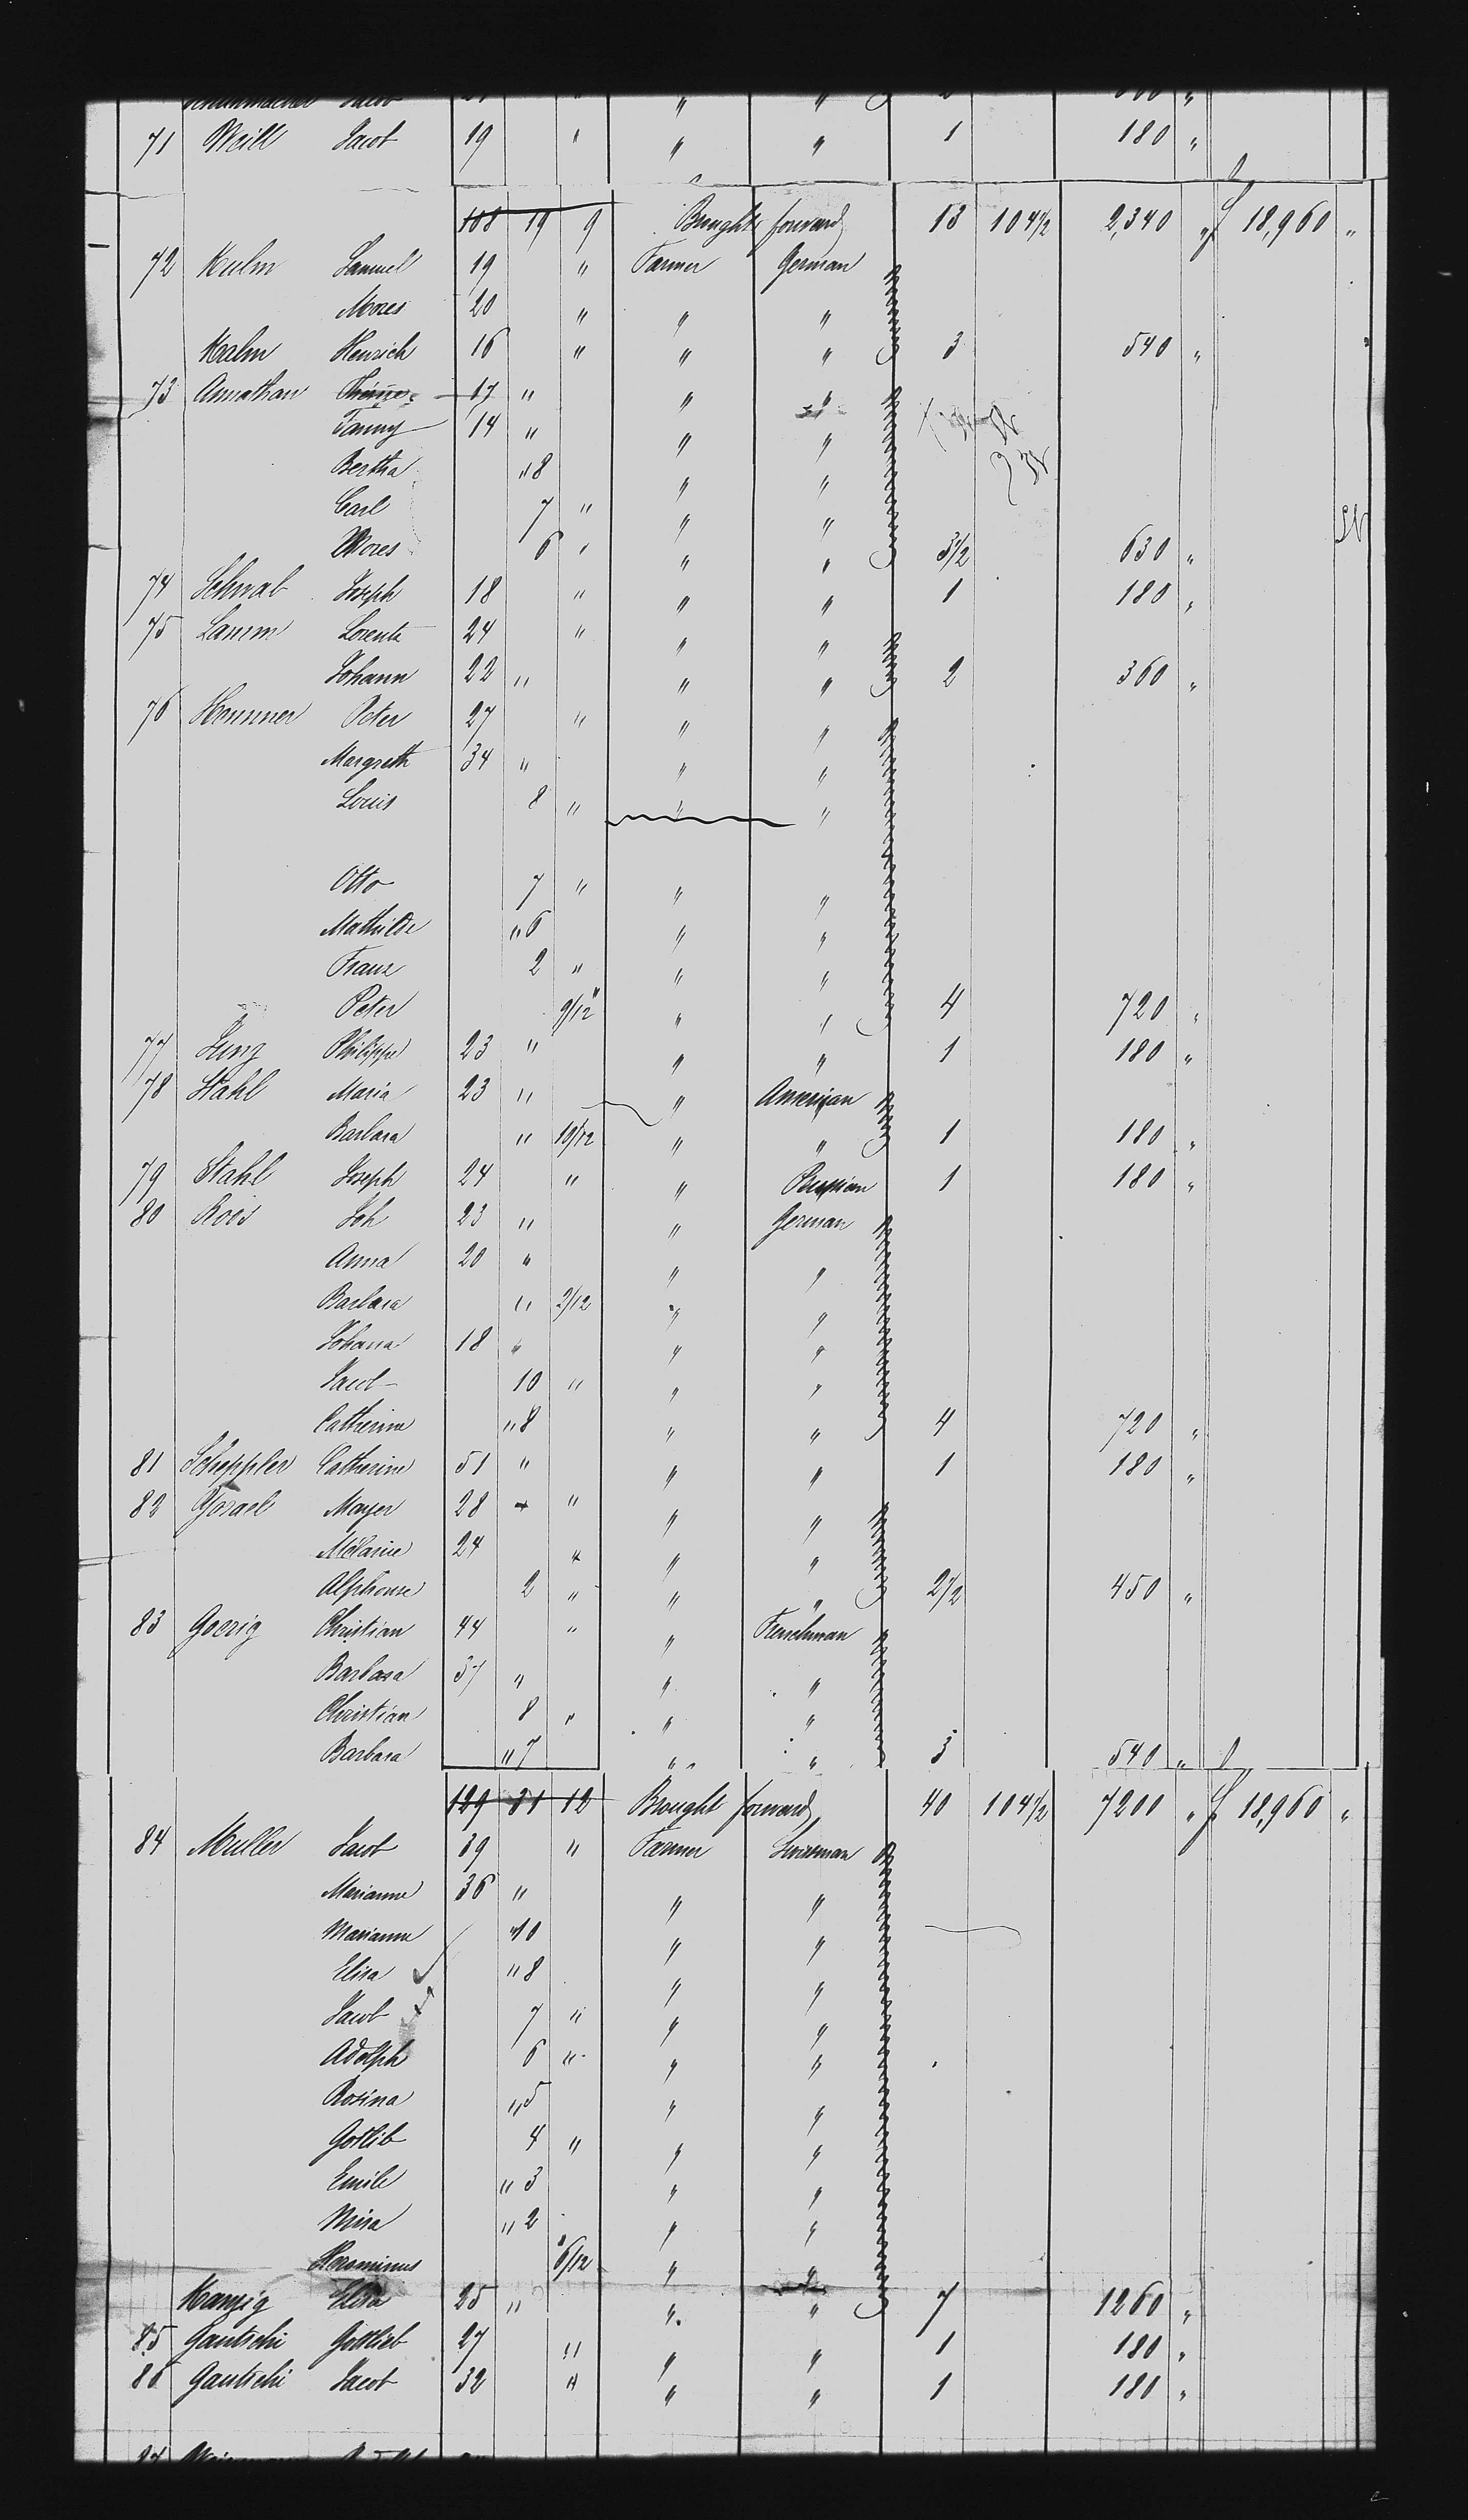 Schuhmacher Jacob " "
71 Weill Jacob 19 " " " 1 180 "
108 19 9 Brought forward 13 104 1/2 2,340 " f 18,960 "
72 Kulm Samuel 19 " Farmer German
Moses 20 " " "
Kalm Henrich 16 " " " 3 540 "
73 Amathan 17 " " "
Fanny 14 " " "
Bertha " 8 " "
Carl 7 " " "
Mores 6 " " " 3 1/2 630 "
74 Schwab Joseph 18 " " " 1 180 "
75 Lamm Lorentz 24 " " "
Johann 22 " " " 2 360 "
76 Hommer Peter 27 " " "
Margreth 34 " " "
Louis 8 " " "
Otto 7 " " "
Mathilde " 6 " "
Franz 2 " " "
Peter 9/12 " " " 4 720 "
77 Philippe 23 " " " 1 180 "
78 Stahl Maria 23 " " American
Barbara " 10/12 " " 1 180 "
79 Stahl Joseph 24 " " Prussian 1 180 "
80 Roos Joh 23 " " German
Anna 20 " " "
Barbara " 2/12 " "
Johana 18 " " "
Jacob 10 " " "
Catherine " 8 " " 4 720 "
81 Scheppler Catherine 51 " " " 1 180 "
82 Israel Mayer 28 " " "
Mélanie 24 " " "
Alphonse 2 " " " 2 1/2 450 "
83 Goerig Christian 44 " " Frenchman
Barbara 37 " " "
Christian 8 " " "
Barbara " 7 " " 3 540 "
129 31 12 Brought forward 40 104 1/2 7200 " f 18,960 "
84 Muller Jacob 39 " Farmer Swissman
Marianne 36 " " "
Marianne " 10 " "
Elisa " 8 " "
Jacob 7 " " "
Adolph 6 " " "
Rosina " 5 " "
Gotlib 4 " " "
Emile " 3 " "
Mina " 2 " "
" 6/12 " "
Elisa 25 " " " 7 1260 "
85 Gautschi Gottlieb 27 " " " 1 180 "
86 Gautschi Jacob 32 " " " 1 180 "